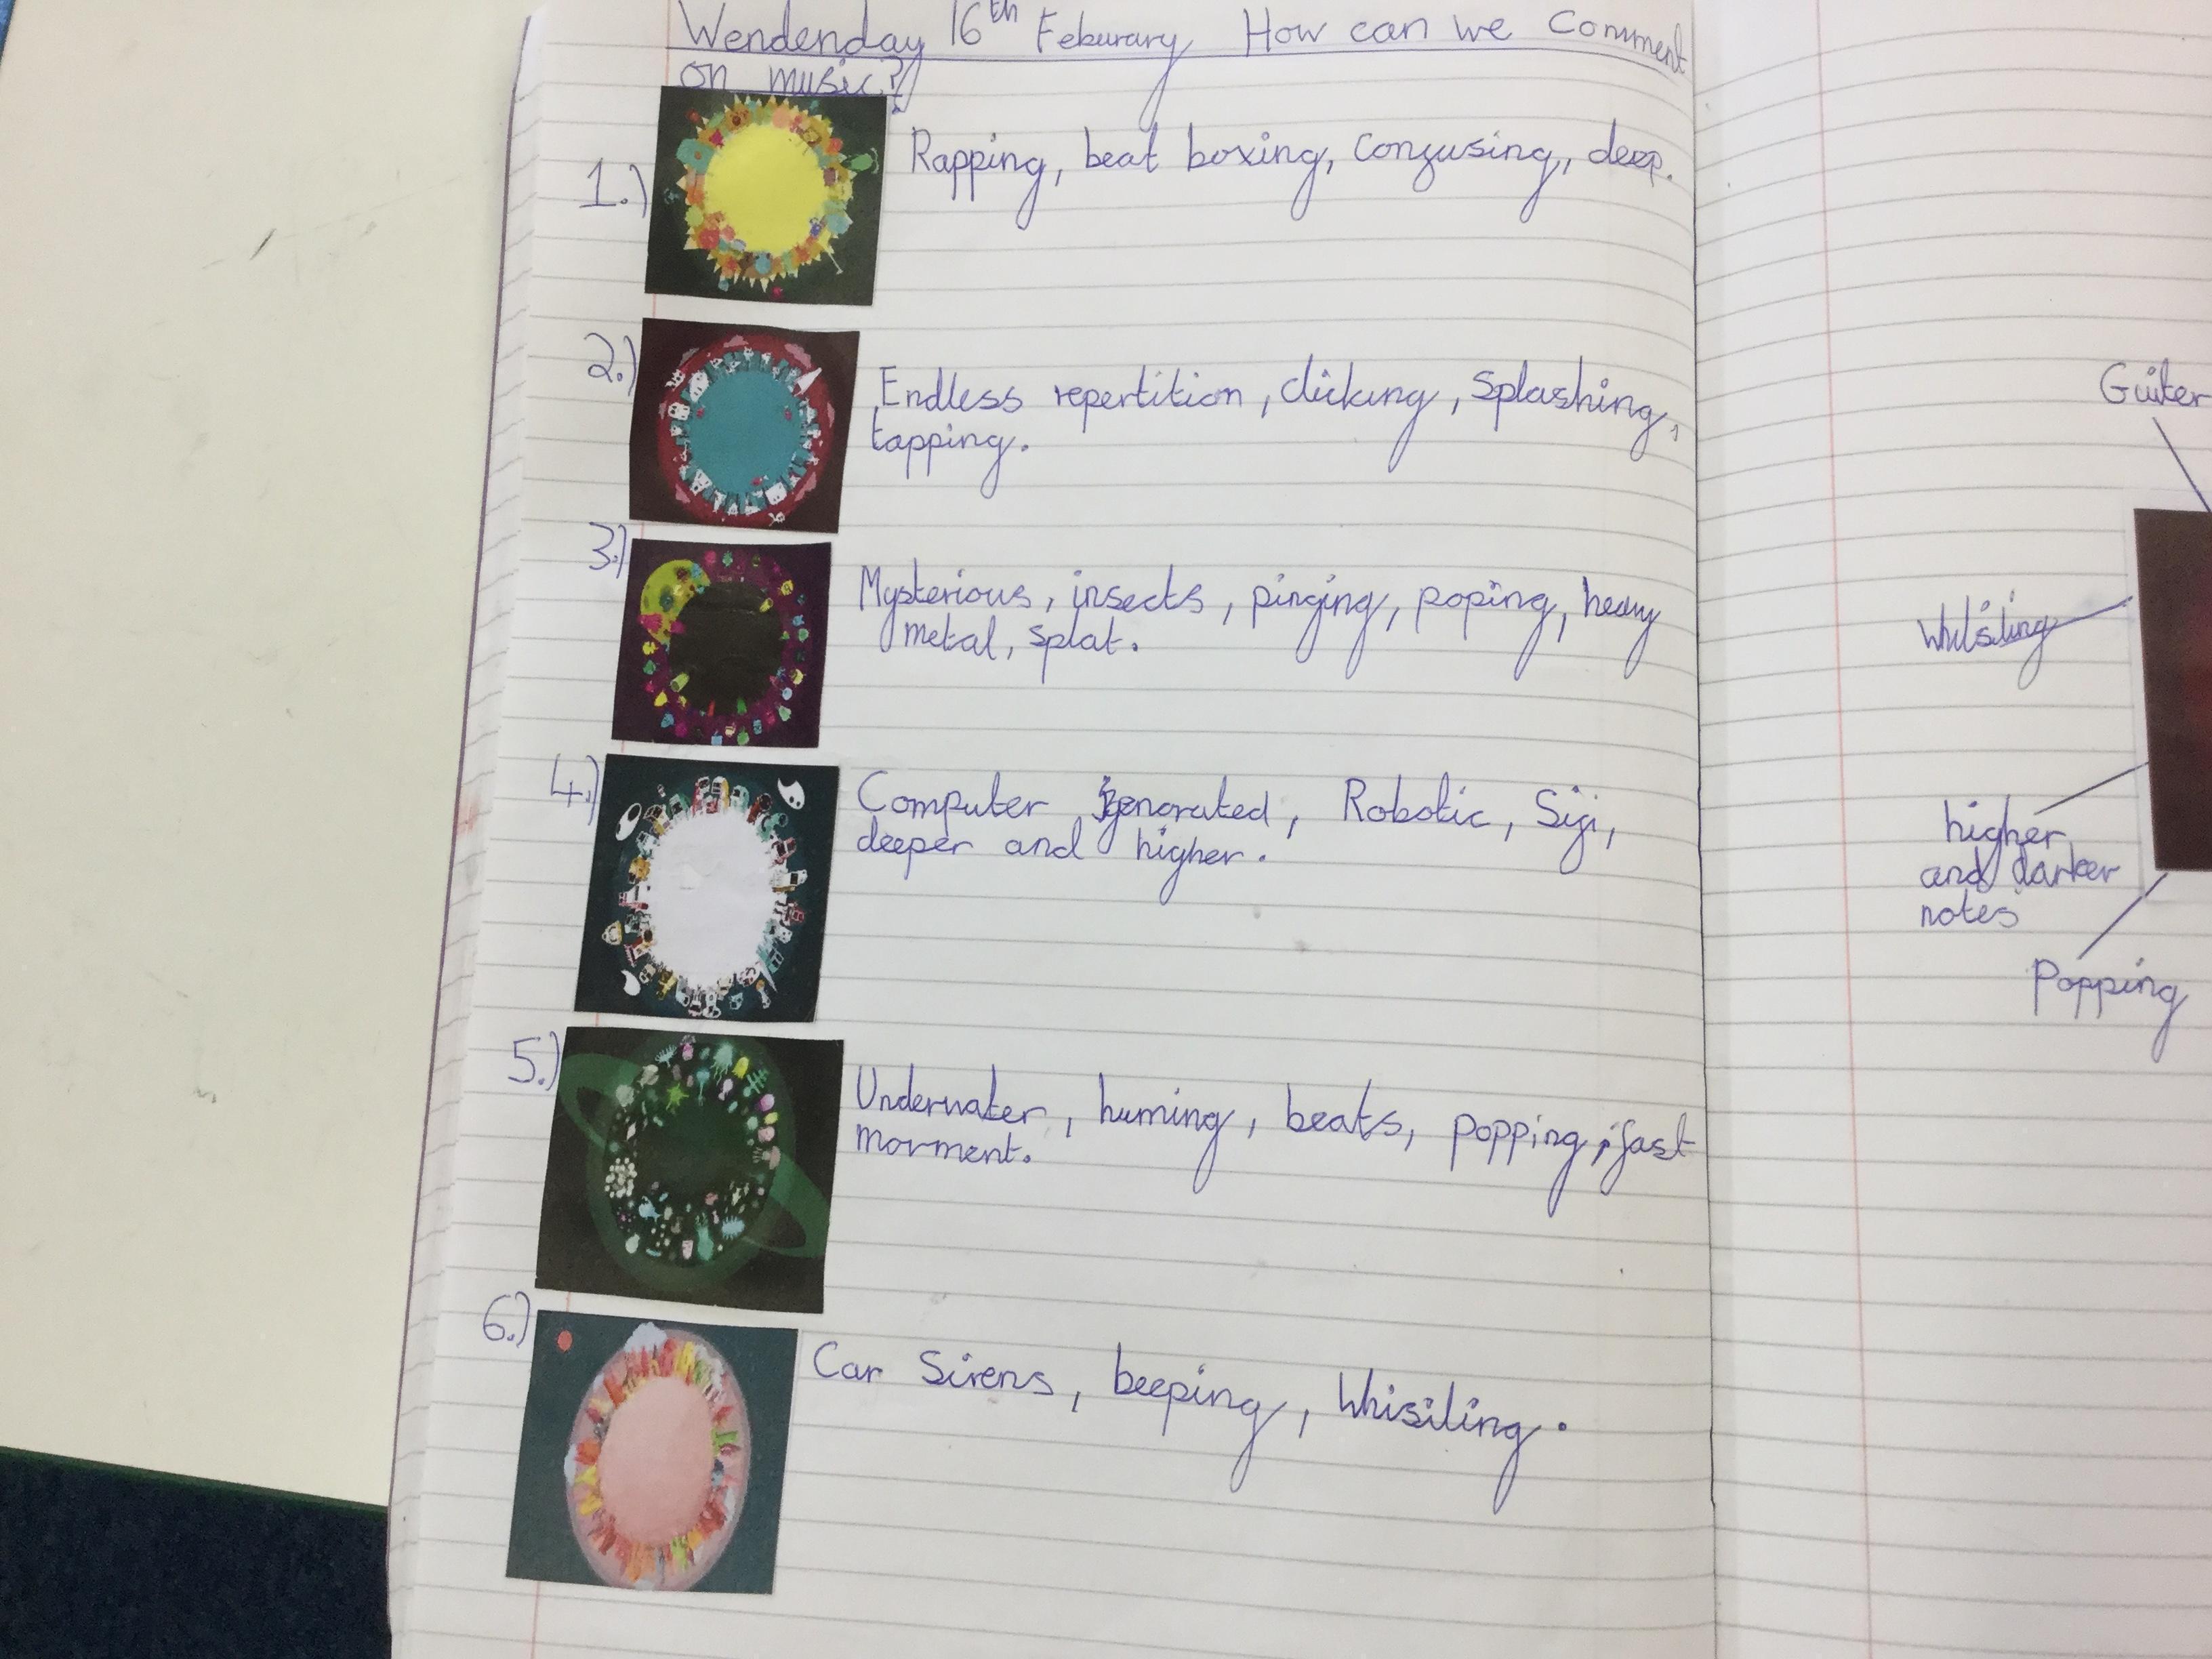 Wendenday 16th Feburary How can we Comment
on music?
1.) Rapping, beat boxing, confusing, deep.
2.) Endless repertition, clicking, splashing,
tapping.
3.) Mysterious, insects, pinging, poping, heavy
metal, splat.
4.) Computer genorated, Robotic, Sifi,
deeper and higher.
5.) Underwater, huming, beats, popping, fast
morment.
6.) Car Sirens, beeping, Whisiling.
Guiter
Whilsiling
higher
and darker
notes
Popping